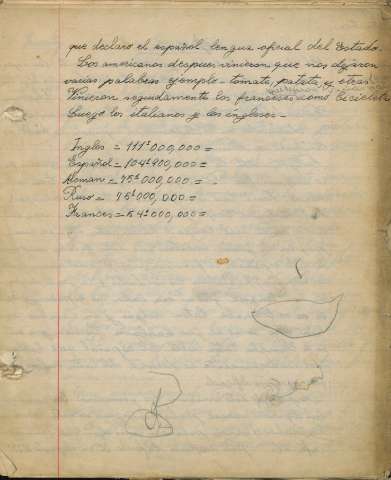 que declaro el español lengua oficial del Estado.
Los americanos despues vinieron que nos dejaron
varias palabras ejemplo - tomate, patata, y otras.
Vinieron seguidamente los franceses como bicicleta
Luego los italianos y los ingleses -
Ingles = 111'000,000 =
Español = 104'900,000 =
Aleman = 75'000,000 =
Ruso = 75'000,000 =
Frances = 64'000,000 =